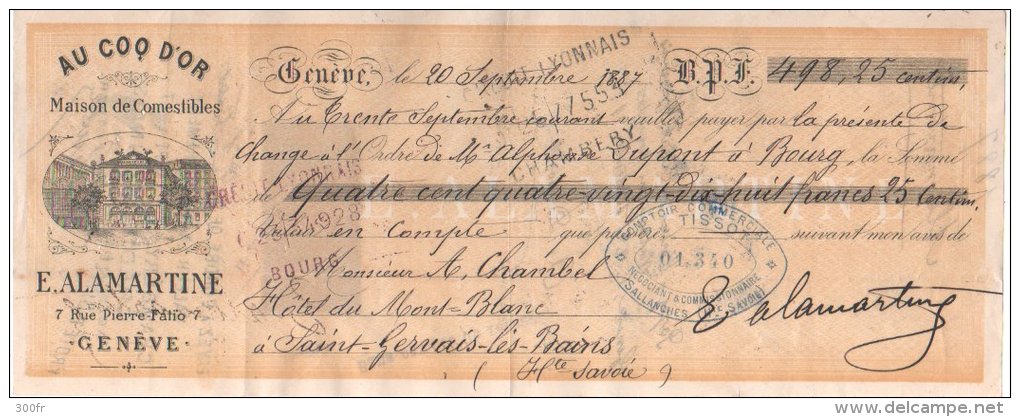 AU COQ D'OR
Maison de Comestibles
E. ALAMARTINE
7 Rue Pierre Fatio 7
GENÈVE
Genève, le 20 Septembre 1887 B.P.F. 498,25 centim,
Au Trente Septembre courant veuillez payer par la présente de
Change à l'Ordre de Mr Alphonse Dupont à Bourg, la Somme
Quatre cent quatre-vingt-dix huit francs 25 Centim.
Valeur en Compte que passerez suivant mon avis de
Monsieur A. Chambel
Hôtel du Mont-Blanc
à Saint-Gervais-lès-Bains
(Hte Savoie)
E. ALAMARTINE
E Alamartine
CRÉDIT LYONNAIS
77553
CHAMBERY
CRÉDIT LYONNAIS
4928
BOURG
COMPTOIR COMMERCIALE
TISSOT
01.340
NEGOCIANT & COMMISSIONNAIRE
SALLANCHES (HTE SAVOIE)
300fr
delcampe.net